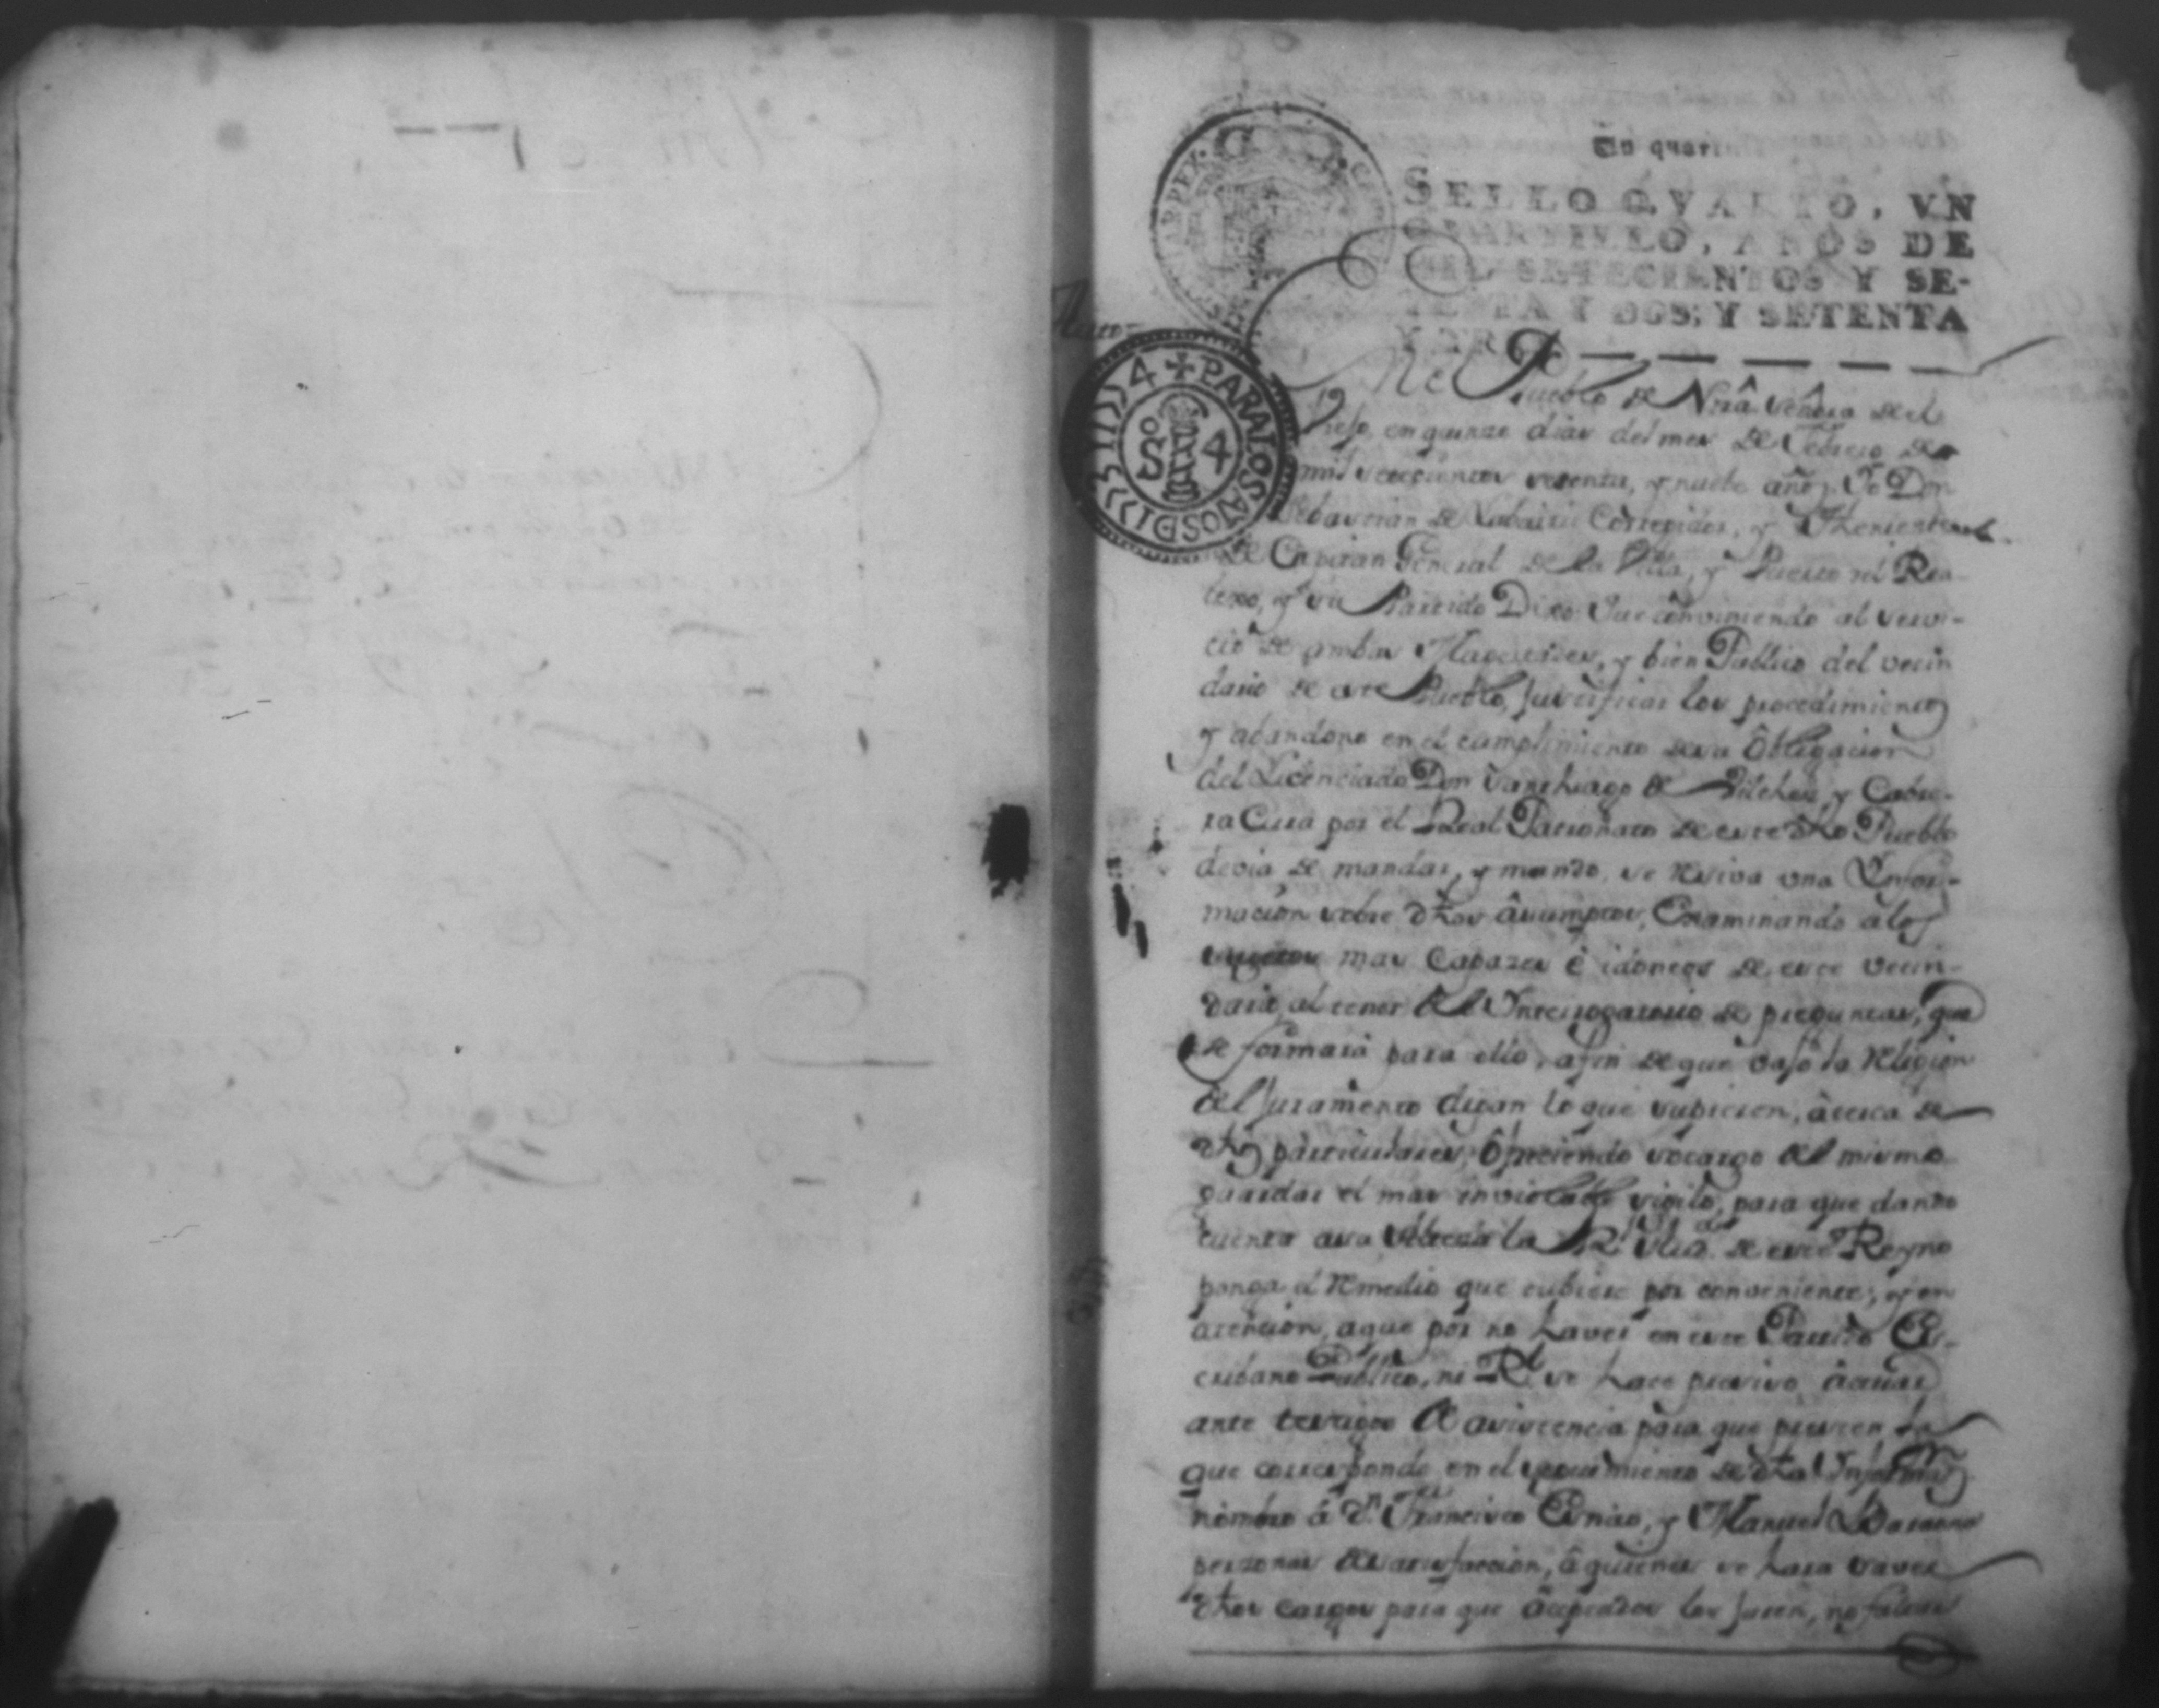 Un quarti
SELLO QVARTO, VN
QVARTILLO, AÑOS DE
MIL SETECIENTOS Y SE-
TENTA Y DOS, Y SETENTA
Y TRES
PARA LOS AÑOS D 1774
SO 4
Pueblo de Nrâ Señora de el
Viejo, en quinze dias del mes de Febrero de
mil setecientos setenta, y nuebe años Yo Don
Corregidor, y Theniente
de Capitan General de la Villa, y Puerto del Rea-
lexo, y su Partido Dixo Que combiniendo al servi-
cio de ambas Magestades, y bien Publico del vecin
dario de este Pueblo, justificar los procedimientos
y abandono en el cumplimiento de su Obligacion
del Licenciado Don Santhiago de Vilches, y Cabre-
ra Cura por el Real Patronato de este dho Pueblo
devia de mandar, y mando, se resiva una Infor-
macion sobre dhos âsumptos, Examinando a los
sugetos mas Capazes ê idoneos de este vecin-
dario, al tenor del Interrogatorio de preguntas, que
se formará para ello, afin de que vajo la religion
del juramento digan lo que supieren, âcerca de
dhos particulares, ôfreciendo vocargo del mismo
guardar el mas inviolable sigilo, para que dando
cuenta a su Alteza la Rl Auda de este Reyno
ponga el remedio que tubiere por conveniente; y en
atencion, a que por no haver en este Partido Es-
cribano Publico, ni Rl se hace preciso âctuar
ante testigos de asistencia para que presten la
que corresponde en el seguimiento de dha Informn
nombro â Dn Francisco y Manuel
personas de satisfaccion, â quienes se hara saver
dhos cargos para que âceptados los juren, no